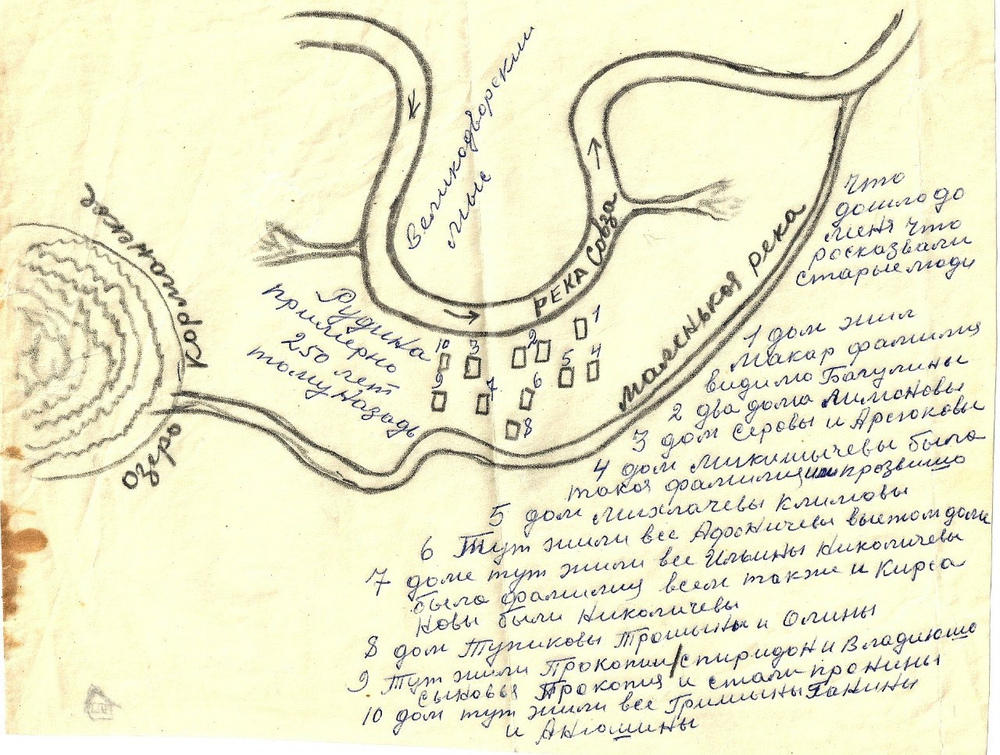 Великодворский
мыс
РЕКА Совза
маленькая река
Коргманское
озеро
Рудина
примерно
250 лет
тому назадь
1
2
3
4
5
6
7
8
9
10
что
дошло до
меня что
росказвали
старые люди
1 дом жил
Макар фамилия
видимо Багулины
2 два дома Лимоновы
3 дом Серовы и Арсюковы
4 дом Микишычевы была
такая фамилия или прозвищо
5 дом Михлачевы Климовы
6 Тут жили все Афоничевы вшетом доме
7 доме тут жили все Ильины Николичевы
была фамилия всем также и Кирса
новы были Николичевы
8 дом Тупиковы Трошыны и Олины
9 Тут жили Прокопий/Спиридон и Владиюшо
сыновья Прокопия и стали Пронины
10 дом тут жили все Гришины Ганини
и Антошины